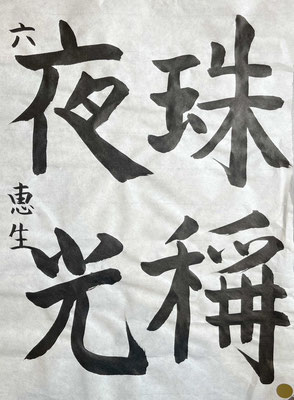 珠稱
夜光
六 恵生